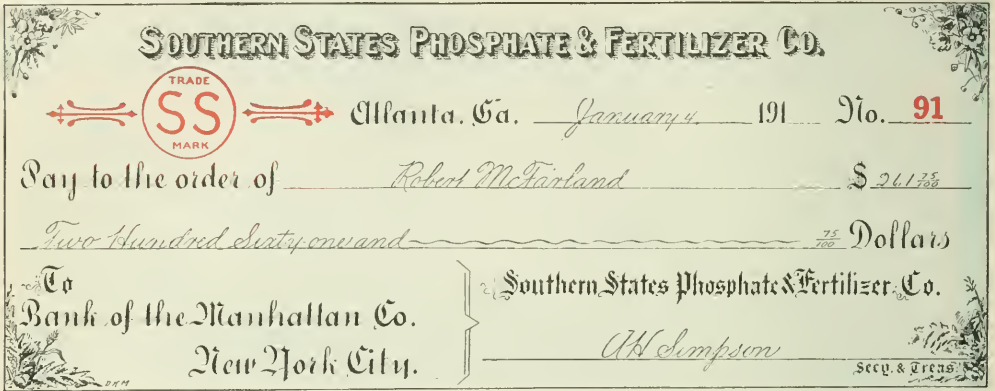 SOUTHERN STATES PHOSPHATE & FERTILIZER CO.
TRADE
SS
MARK
Atlanta, Ga. January 4. 191 No. 91
Pay to the order of Robert McFarland $ 261 75/100
Two Hundred Sixty-one and 75/100 Dollars
To
Bank of the Manhattan Co.
New York City.
Southern States Phosphate & Fertilizer Co.
AH Simpson
Secy. & Treas.
DKM